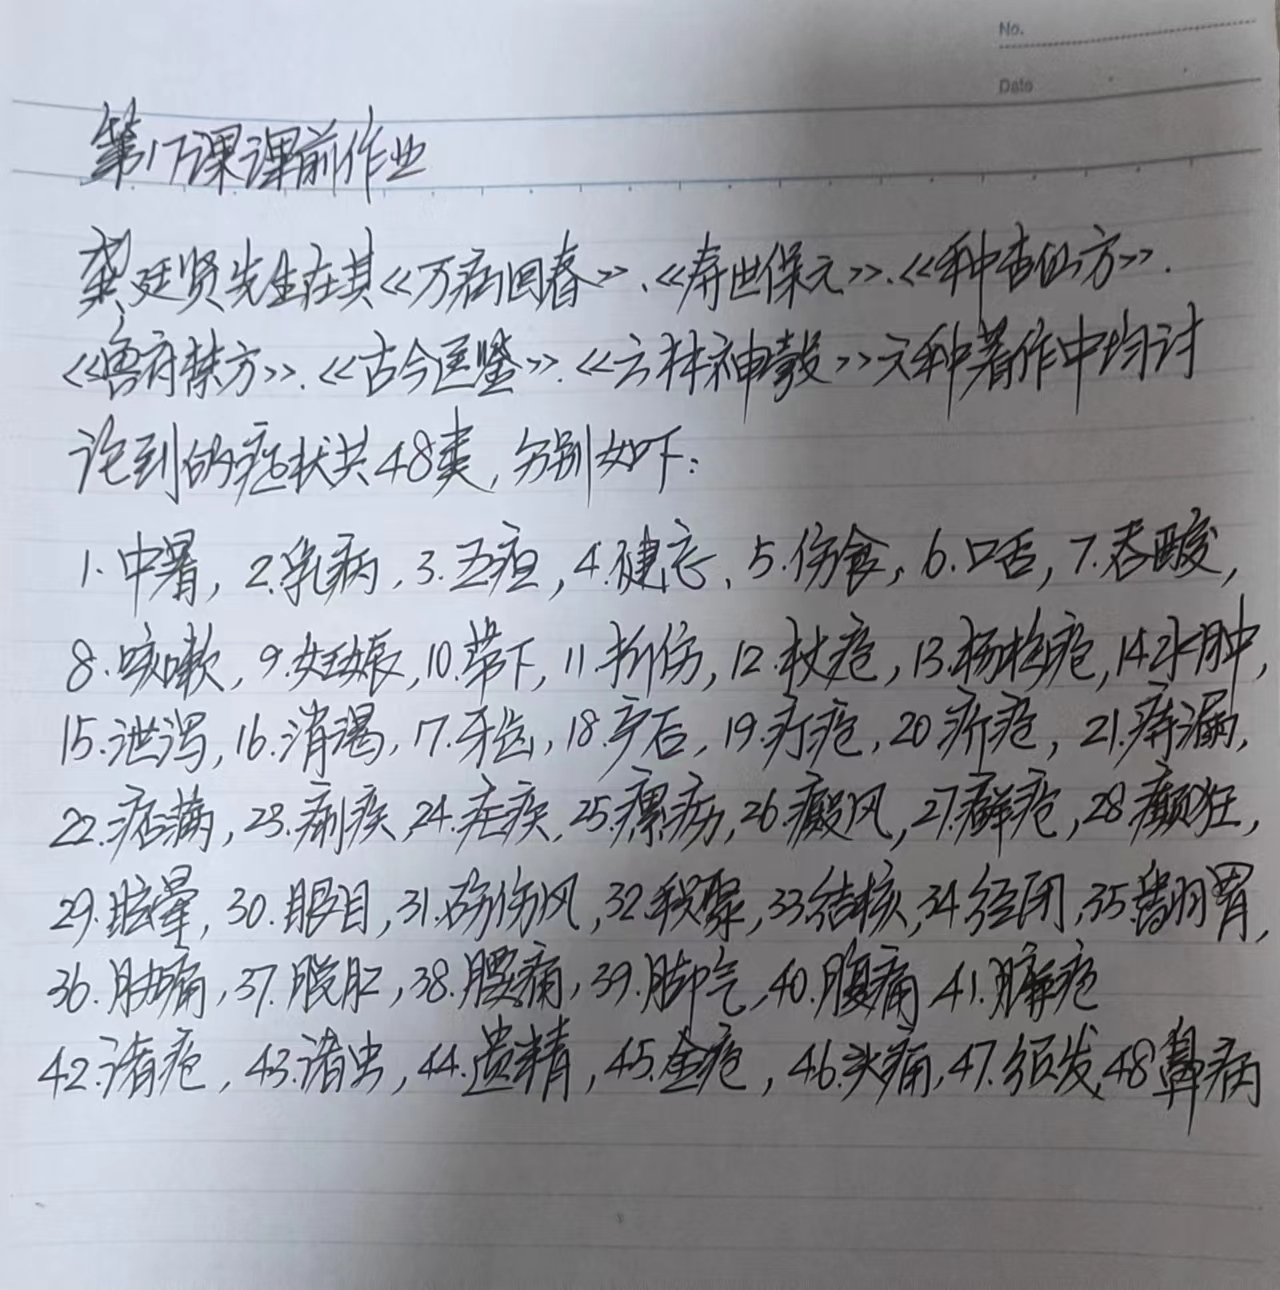 No.
Date
第17课课前作业
龚廷贤先生在其《万病回春》、《寿世保元》、《种杏仙方》、
《鲁府禁方》、《古今医鉴》、《云林神彀》六种著作中均讨
论到的症状共48类,分别如下:
1.中暑,2.乳病,3.五疸,4.健忘、5.伤食,6.口舌,7.吞酸,
8.咳嗽,9.妊娠,10.带下,11.折伤,12.杖疮,13.杨梅疮,14.水肿,
15.泄泻,16.消渴,17.牙齿,18.产后,19.疔疮,20.疥疮,21.痔漏,
22.痞满,23.痢疾,24.疟疾,25.瘰疬,26.癜风,27.癣疮,28.癫狂,
29.眩晕,30.眼目,31.破伤风,32.积聚,33.结核,34.经闭,35.翻胃,
36.胁痛,37.脱肛,38.腰痛,39.脚气,40.腹痛,41.臁疮
42.诸疮,43.诸虫,44.遗精,45.金疮,46.头痛,47.须发,48.鼻病